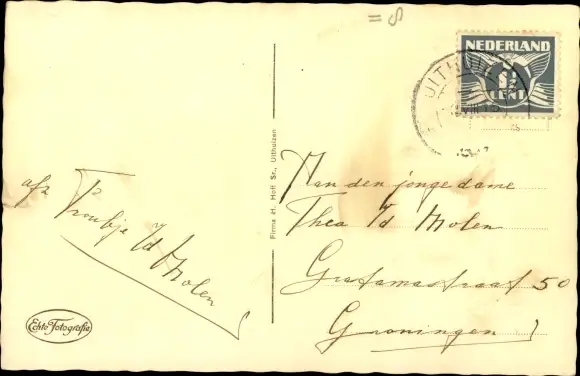 = 8
NEDERLAND
1½
CENT
UITHUIZEN
afz
v/d Molen
Echte Fotografie
Firma H. Hoff Sr., Uithuizen
Aan den jonge dame
Thea v/d Molen
Gratamastraat 50
Groningen